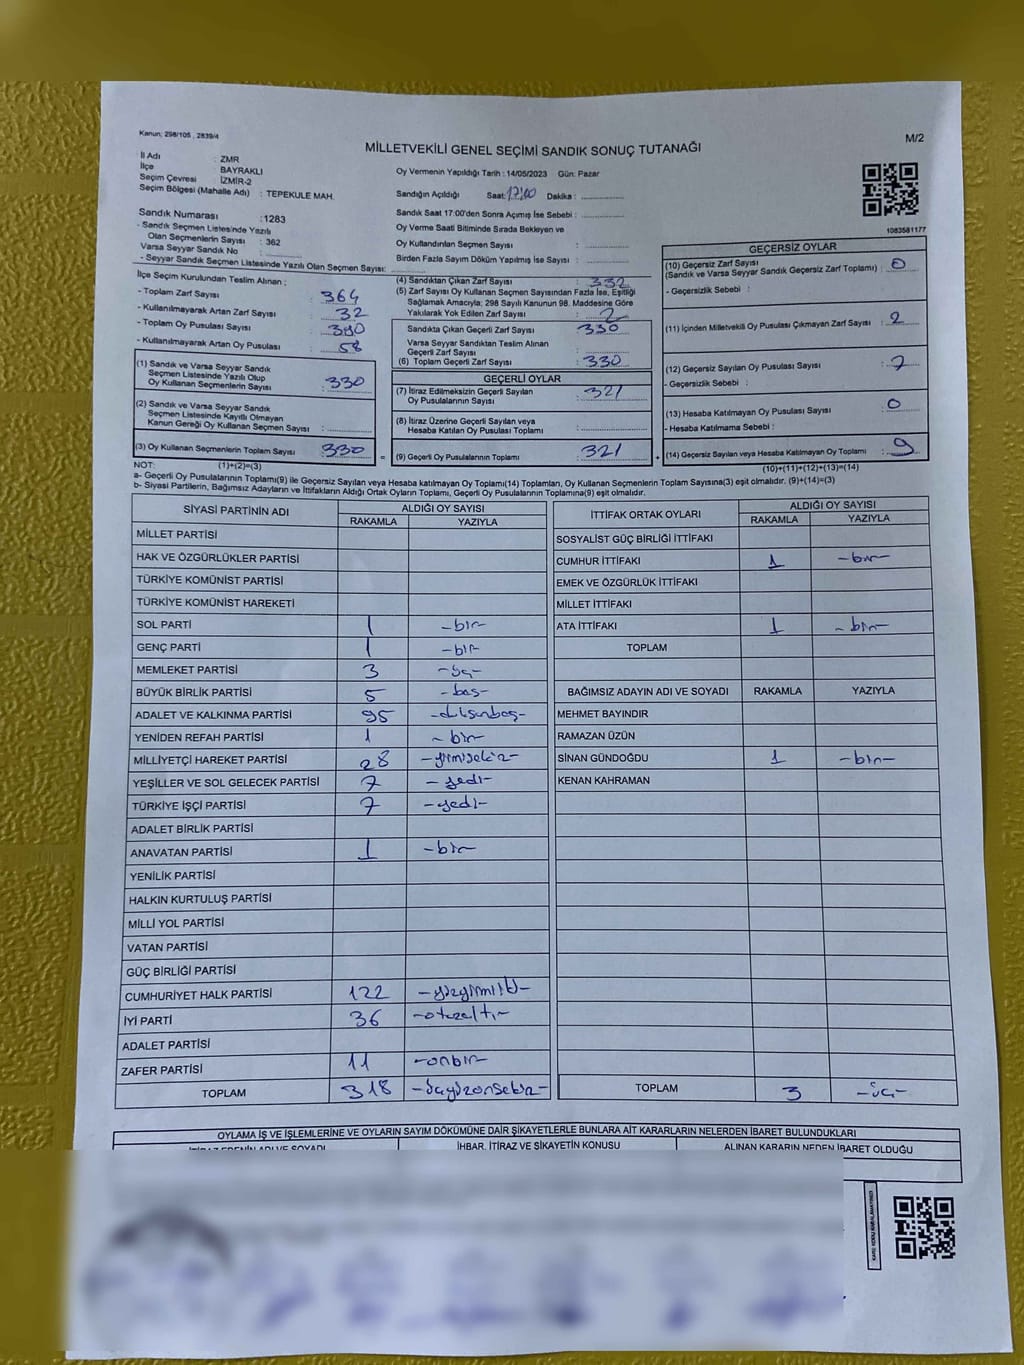 Kanun; 298/105 , 2839/4
M/2
MİLLETVEKİLİ GENEL SEÇİMİ SANDIK SONUÇ TUTANAĞI
İl Adı : ZMR
İlçe : BAYRAKLI
Seçim Çevresi : İZMİR-2
Seçim Bölgesi (Mahalle Adı) : TEPEKULE MAH.
Sandık Numarası : 1283
- Sandık Seçmen Listesinde Yazılı
Olan Seçmenlerin Sayısı : 362
Varsa Seyyar Sandık No :
- Seyyar Sandık Seçmen Listesinde Yazılı Olan Seçmen Sayısı:
Oy Vermenin Yapıldığı Tarih : 14/05/2023 Gün: Pazar
Sandığın Açıldığı Saat: 17:00 Dakika :
Sandık Saat 17:00'den Sonra Açımış İse Sebebi :
Oy Verme Saati Bitiminde Sırada Bekleyen ve
Oy Kullandırılan Seçmen Sayısı :
Birden Fazla Sayım Döküm Yapılmış İse Sayısı :
1083581177
İlçe Seçim Kurulundan Teslim Alınan ;
- Toplam Zarf Sayısı : 364
- Kullanılmayarak Artan Zarf Sayısı : 32
- Toplam Oy Pusulası Sayısı :
- Kullanılmayarak Artan Oy Pusulası : 58
(1) Sandık ve Varsa Seyyar Sandık
Seçmen Listesinde Yazılı Olup
Oy Kullanan Seçmenlerin Sayısı : 330
(2) Sandık ve Varsa Seyyar Sandık
Seçmen Listesinde Kayıtlı Olmayan
Kanun Gereği Oy Kullanan Seçmen Sayısı :
(3) Oy Kullanan Seçmenlerin Toplam Sayısı : 330
(1)+(2)=(3)
(4) Sandıktan Çıkan Zarf Sayısı : 332
(5) Zarf Sayısı Oy Kullanan Seçmen Sayısından Fazla İse, Eşitliği
Sağlamak Amacıyla; 298 Sayılı Kanunun 98. Maddesine Göre
Yakılarak Yok Edilen Zarf Sayısı : 2
Sandıkta Çıkan Geçerli Zarf Sayısı : 330
Varsa Seyyar Sandıktan Teslim Alınan
Geçerli Zarf Sayısı :
(6) Toplam Geçerli Zarf Sayısı : 330
GEÇERLİ OYLAR
(7) İtiraz Edilmeksizin Geçerli Sayılan
Oy Pusulalarının Sayısı : 321
(8) İtiraz Üzerine Geçerli Sayılan veya
Hesaba Katılan Oy Pusulası Toplamı :
= (9) Geçerli Oy Pusulalarının Toplamı : 321 +
GEÇERSİZ OYLAR
(10) Geçersiz Zarf Sayısı
(Sandık ve Varsa Seyyar Sandık Geçersiz Zarf Toplamı) : 0
- Geçersizlik Sebebi :
(11) İçinden Milletvekili Oy Pusulası Çıkmayan Zarf Sayısı : 2
(12) Geçersiz Sayılan Oy Pusulası Sayısı : 7
- Geçersizlik Sebebi :
(13) Hesaba Katılmayan Oy Pusulası Sayısı : 0
- Hesaba Katılmama Sebebi :
(14) Geçersiz Sayılan veya Hesaba Katılmayan Oy Toplamı : 9
(10)+(11)+(12)+(13)=(14)
NOT:
a- Geçerli Oy Pusulalarının Toplamı(9) ile Geçersiz Sayılan veya Hesaba katılmayan Oy Toplamı(14) Toplamları, Oy Kullanan Seçmenlerin Toplam Sayısına(3) eşit olmalıdır. (9)+(14)=(3)
b- Siyasi Partilerin, Bağımsız Adayların ve İttifakların Aldığı Ortak Oyların Toplamı, Geçerli Oy Pusulalarının Toplamına(9) eşit olmalıdır.
SİYASİ PARTİNİN ADI ALDIĞI OY SAYISI
RAKAMLA YAZIYLA
MİLLET PARTİSİ
HAK VE ÖZGÜRLÜKLER PARTİSİ
TÜRKİYE KOMÜNİST PARTİSİ
TÜRKİYE KOMÜNİST HAREKETİ
SOL PARTİ 1 -bir-
GENÇ PARTİ 1 -bir-
MEMLEKET PARTİSİ 3 -üç-
BÜYÜK BİRLİK PARTİSİ 5 -beş-
ADALET VE KALKINMA PARTİSİ 95 -doksanbeş-
YENİDEN REFAH PARTİSİ 1 -bir-
MİLLİYETÇİ HAREKET PARTİSİ 28 -yirmisekiz-
YEŞİLLER VE SOL GELECEK PARTİSİ 7 -yedi-
TÜRKİYE İŞÇİ PARTİSİ 7 -yedi-
ADALET BİRLİK PARTİSİ
ANAVATAN PARTİSİ 1 -bir-
YENİLİK PARTİSİ
HALKIN KURTULUŞ PARTİSİ
MİLLİ YOL PARTİSİ
VATAN PARTİSİ
GÜÇ BİRLİĞİ PARTİSİ
CUMHURİYET HALK PARTİSİ 122 -yüzyirmiiki-
İYİ PARTİ 36 -otuzaltı-
ADALET PARTİSİ
ZAFER PARTİSİ 11 -onbir-
TOPLAM 318 -üçyüzonsekiz-
İTTİFAK ORTAK OYLARI ALDIĞI OY SAYISI
RAKAMLA YAZIYLA
SOSYALİST GÜÇ BİRLİĞİ İTTİFAKI
CUMHUR İTTİFAKI 1 -bir-
EMEK VE ÖZGÜRLÜK İTTİFAKI
MİLLET İTTİFAKI
ATA İTTİFAKI 1 -bir-
TOPLAM
BAĞIMSIZ ADAYIN ADI VE SOYADI RAKAMLA YAZIYLA
MEHMET BAYINDIR
RAMAZAN ÜZÜN
SİNAN GÜNDOĞDU 1 -bir-
KENAN KAHRAMAN
TOPLAM 3 -üç-
OYLAMA İŞ VE İŞLEMLERİNE VE OYLARIN SAYIM DÖKÜMÜNE DAİR ŞİKAYETLERLE BUNLARA AİT KARARLARIN NELERDEN İBARET BULUNDUKLARI
İTİRAZ EDENİN ADI VE SOYADI İHBAR, İTİRAZ VE ŞİKAYETİN KONUSU ALINAN KARARIN NEDEN İBARET OLDUĞU